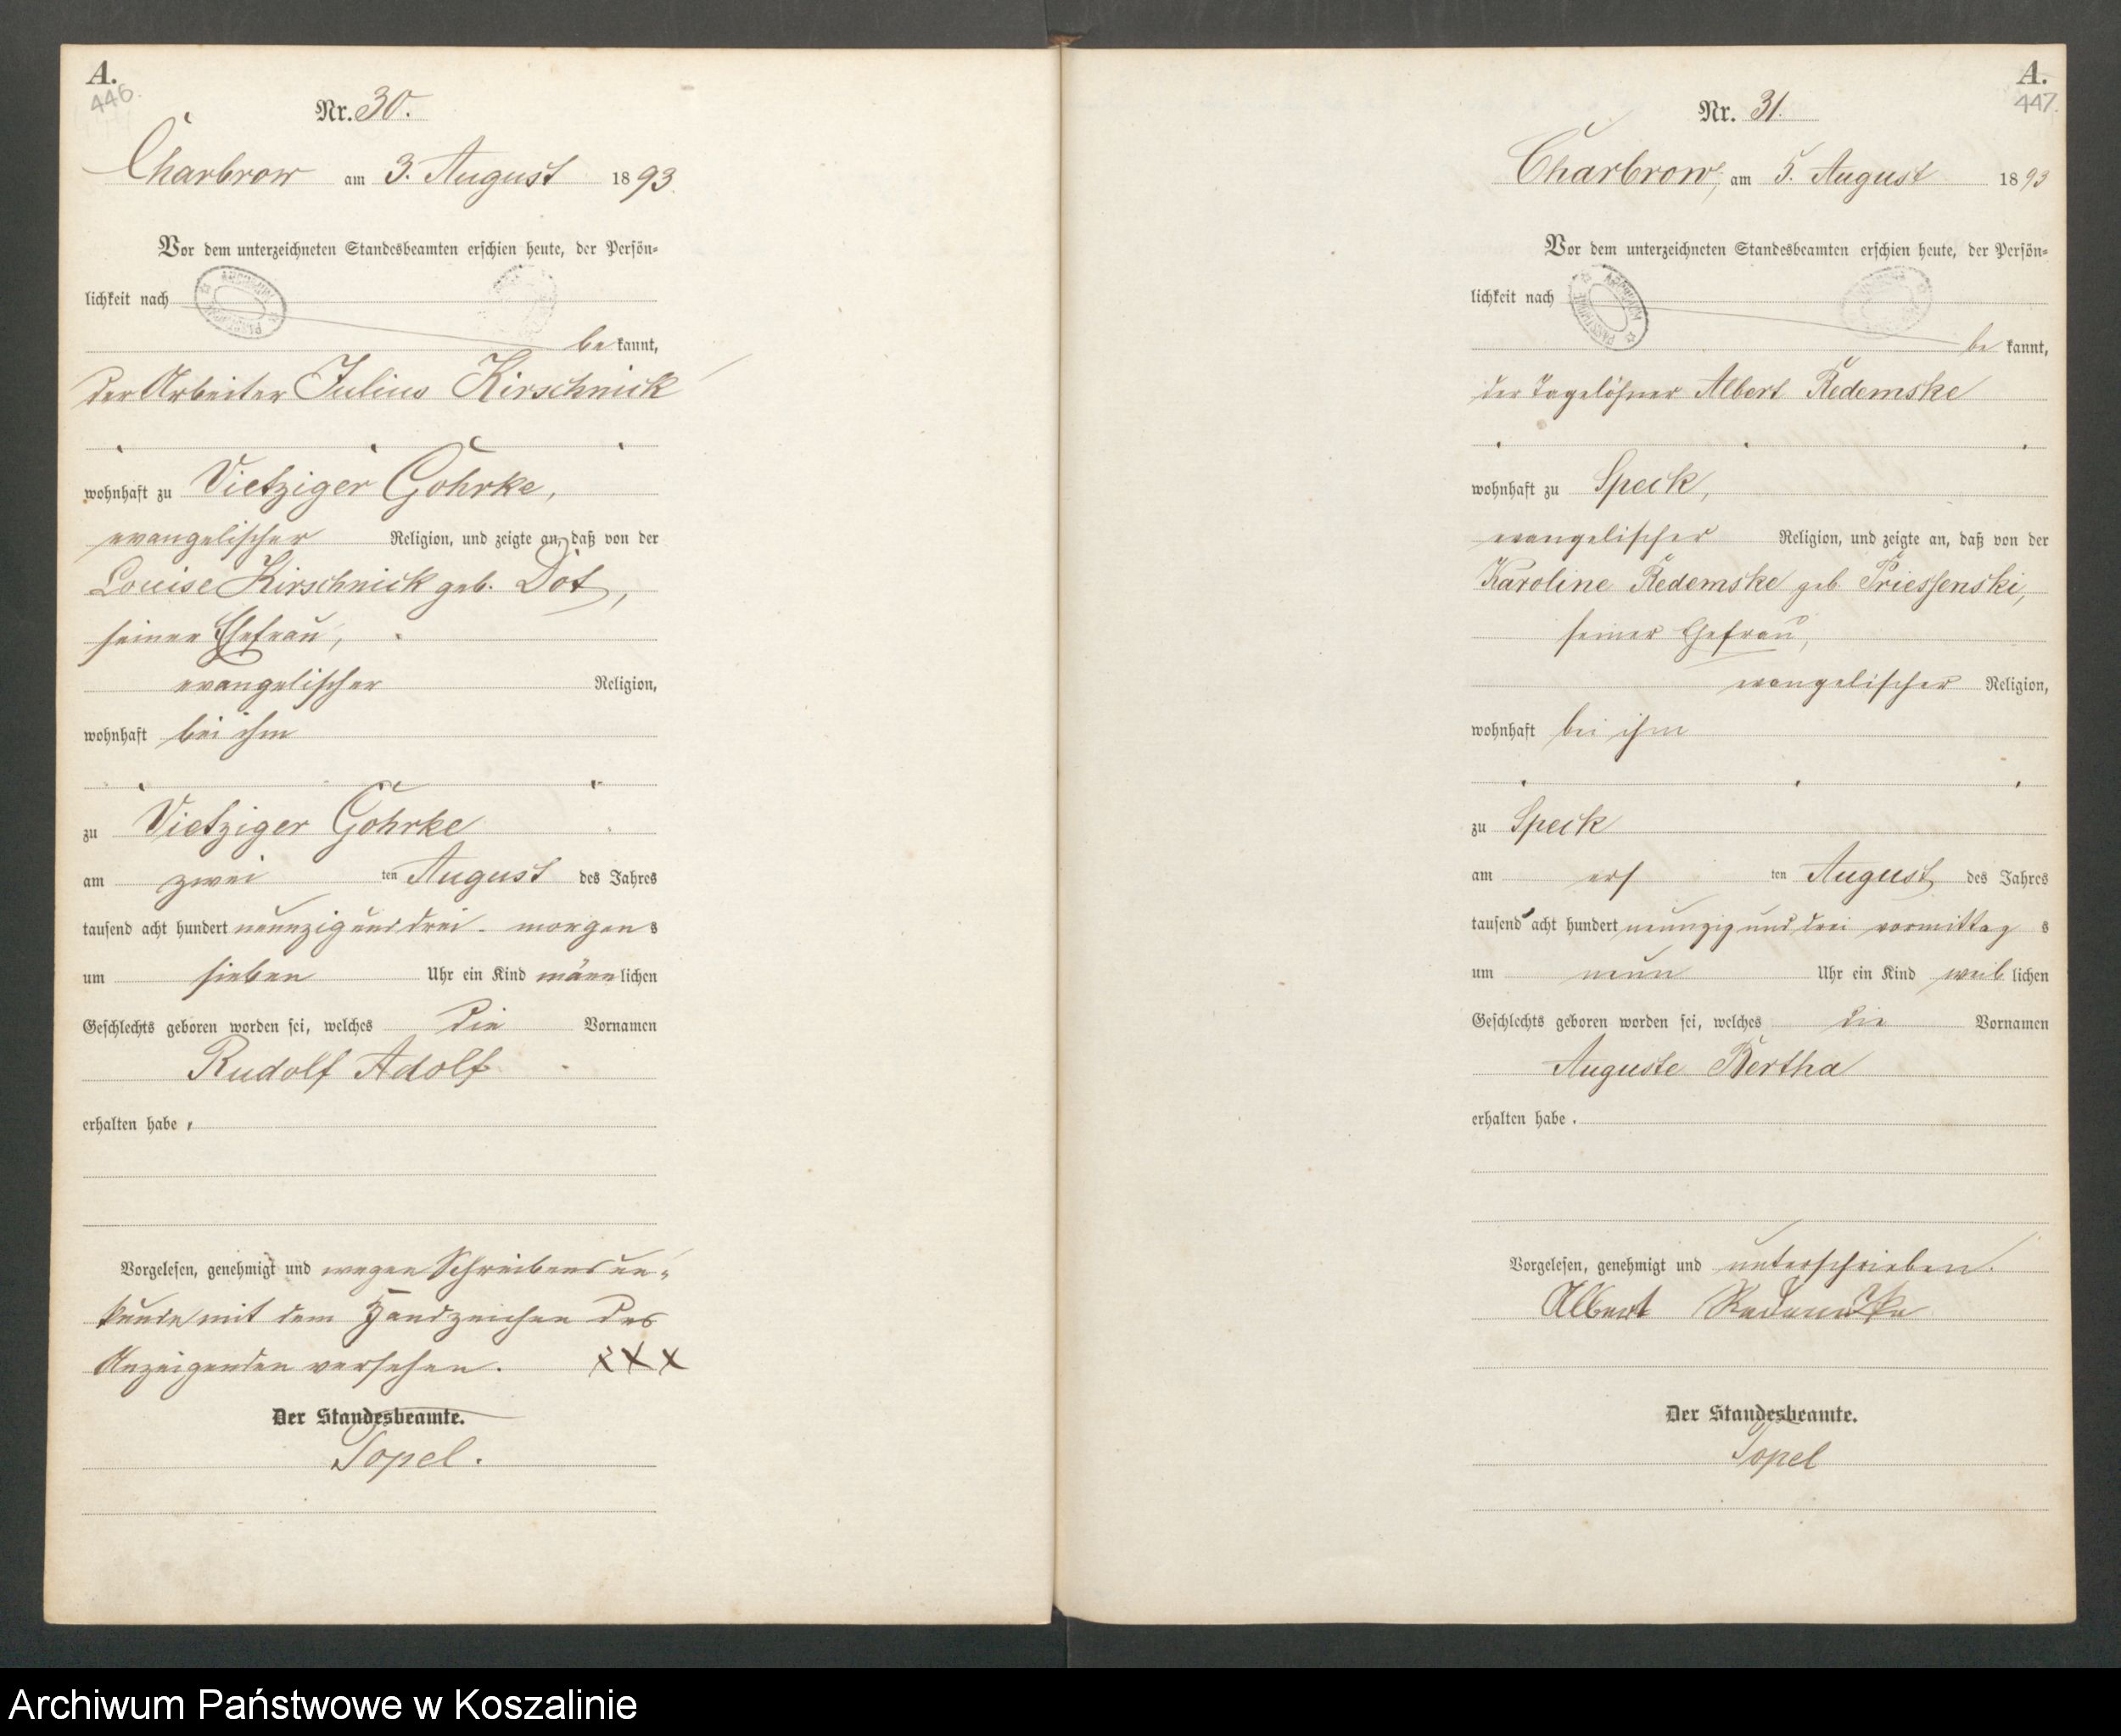 A.
446.
Nr. 30.
Charbrow am 3. August 1893.
Vor dem unterzeichneten Standesbeamten erschien heute, der Persön-
lichkeit nach
bekannt,
der Arbeiter Julius Kirschnick
wohnhaft zu Vietziger Göhrke,
evangelischer Religion, und zeigte an, daß von der
Louise Kirschnick geb. Dot,
seiner Ehefrau,
evangelischer Religion,
wohnhaft bei ihm
zu Vietziger Göhrke
am zwei ten August des Jahres
tausend acht hundert neunzig und drei morgens
um sieben Uhr ein Kind männlichen
Geschlechts geboren worden sei, welches die Vornamen
Rudolf Adolf
erhalten habe.
Vorgelesen, genehmigt und wegen Schreibensun-
kunde mit dem Handzeichen des
Anzeigenden versehen. xxx
Der Standesbeamte.
Topel.
A.
447.
Nr. 31.
Charbrow, am 5. August 1893
Vor dem unterzeichneten Standesbeamten erschien heute, der Persön-
lichkeit nach
bekannt,
der Tagelöhner Albert Redemske
wohnhaft zu Speck,
evangelischer Religion, und zeigte an, daß von der
Karoline Redemske geb. Priessenski,
seiner Ehefrau,
evangelischer Religion,
wohnhaft bei ihm
zu Speck
am ers ten August des Jahres
tausend acht hundert neunzig und drei vormittags
um neun Uhr ein Kind weiblichen
Geschlechts geboren worden sei, welches die Vornamen
Auguste Bertha
erhalten habe.
Vorgelesen, genehmigt und unterschrieben.
Albert Redemske
Der Standesbeamte.
Topel
Archiwum Państwowe w Koszalinie